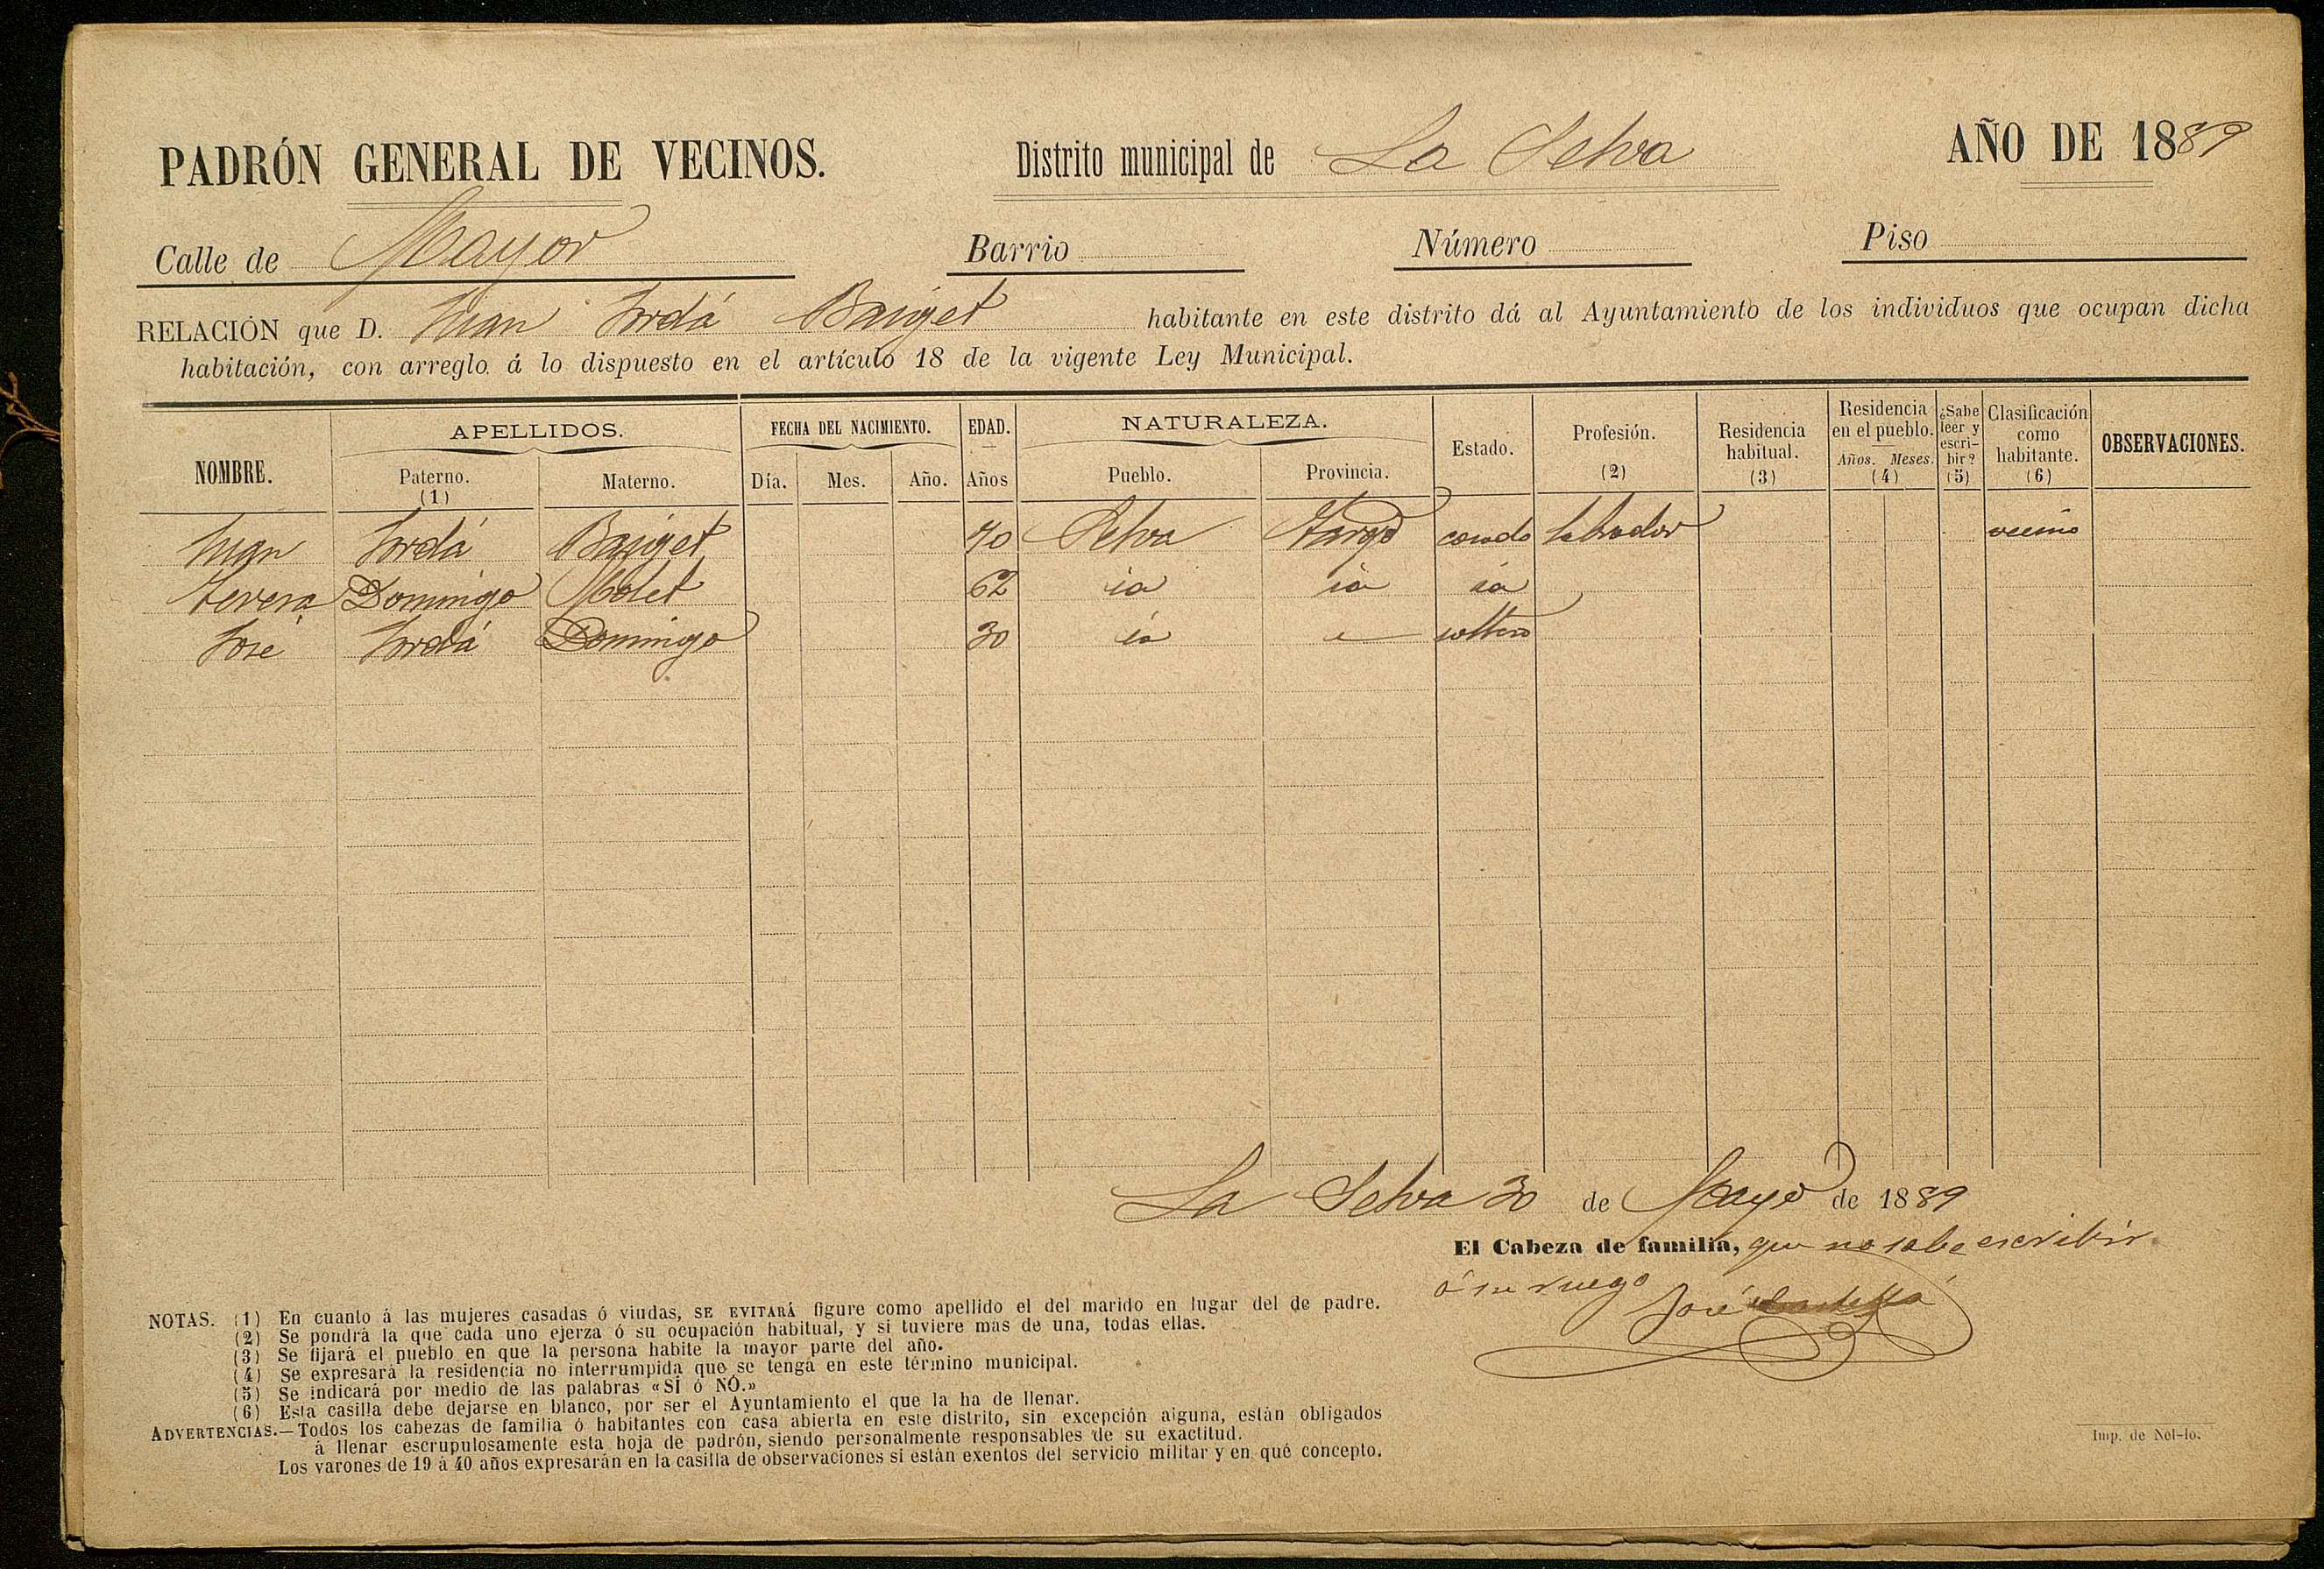 PADRÓN GENERAL DE VECINOS. Distrito municipal de La Selva AÑO DE 1889
Calle de Mayor Barrio Número Piso
RELACIÓN que D. Juan Jordá Baiget habitante en este distrito dá al Ayuntamiento de los individuos que ocupan dicha
habitación, con arreglo á lo dispuesto en el artículo 18 de la vigente Ley Municipal.
NOMBRE. APELLIDOS. Paterno. (1) Materno. FECHA DEL NACIMIENTO. Día. Mes. Año. EDAD. Años NATURALEZA. Pueblo. Provincia. Estado. Profesión. (2) Residencia habitual. (3) Residencia en el pueblo. Años. Meses. (4) ¿Sabe leer y escribir? (5) Clasificación como habitante. (6) OBSERVACIONES.
Juan Jordá Baiget 70 Selva Tarrgª casado labrador vecino
Teresa Domingo Molet 62 id id id
José Jordá Domingo 30 id soltero
La Selva 30 de Mayo de 1889
El Cabeza de familia, que no sabe escribir
á su ruego
José
NOTAS. (1) En cuanto á las mujeres casadas ó viudas, SE EVITARÁ figure como apellido el del marido en lugar del de padre.
(2) Se pondrá la que cada uno ejerza ó su ocupación habitual, y si tuviere más de una, todas ellas.
(3) Se fijará el pueblo en que la persona habite la mayor parte del año.
(4) Se expresará la residencia no interrumpida que se tenga en este término municipal.
(5) Se indicará por medio de las palabras «SÍ ó NÓ.»
(6) Esta casilla debe dejarse en blanco, por ser el Ayuntamiento el que la ha de llenar.
ADVERTENCIAS.—Todos los cabezas de familia ó habitantes con casa abierta en este distrito, sin excepción alguna, están obligados
á llenar escrupulosamente esta hoja de padrón, siendo personalmente responsables de su exactitud.
Los varones de 19 á 40 años expresarán en la casilla de observaciones si están exentos del servicio militar y en qué concepto.
Imp. de Nel-lo.